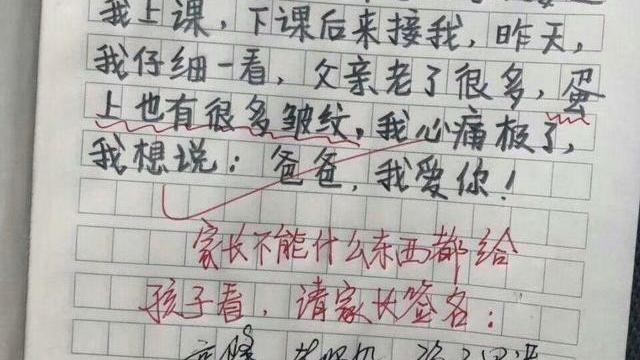 我上课，下课后来接我，昨天，
我仔细一看，父亲老了很多，蛋
上也有很多皱纹，我心痛极了，
我想说：爸爸，我爱你！
家长不能什么东西都给
孩子看，请家长签名：